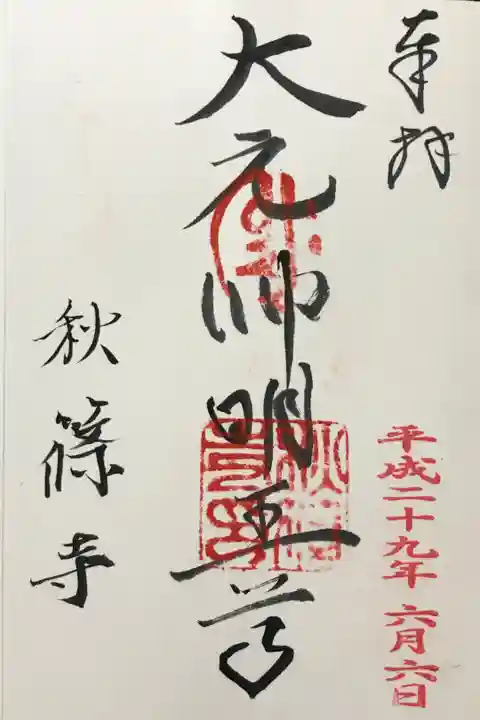 奉拝
平成二十九年 六月六日
大元帅明王尊
秋篠寺